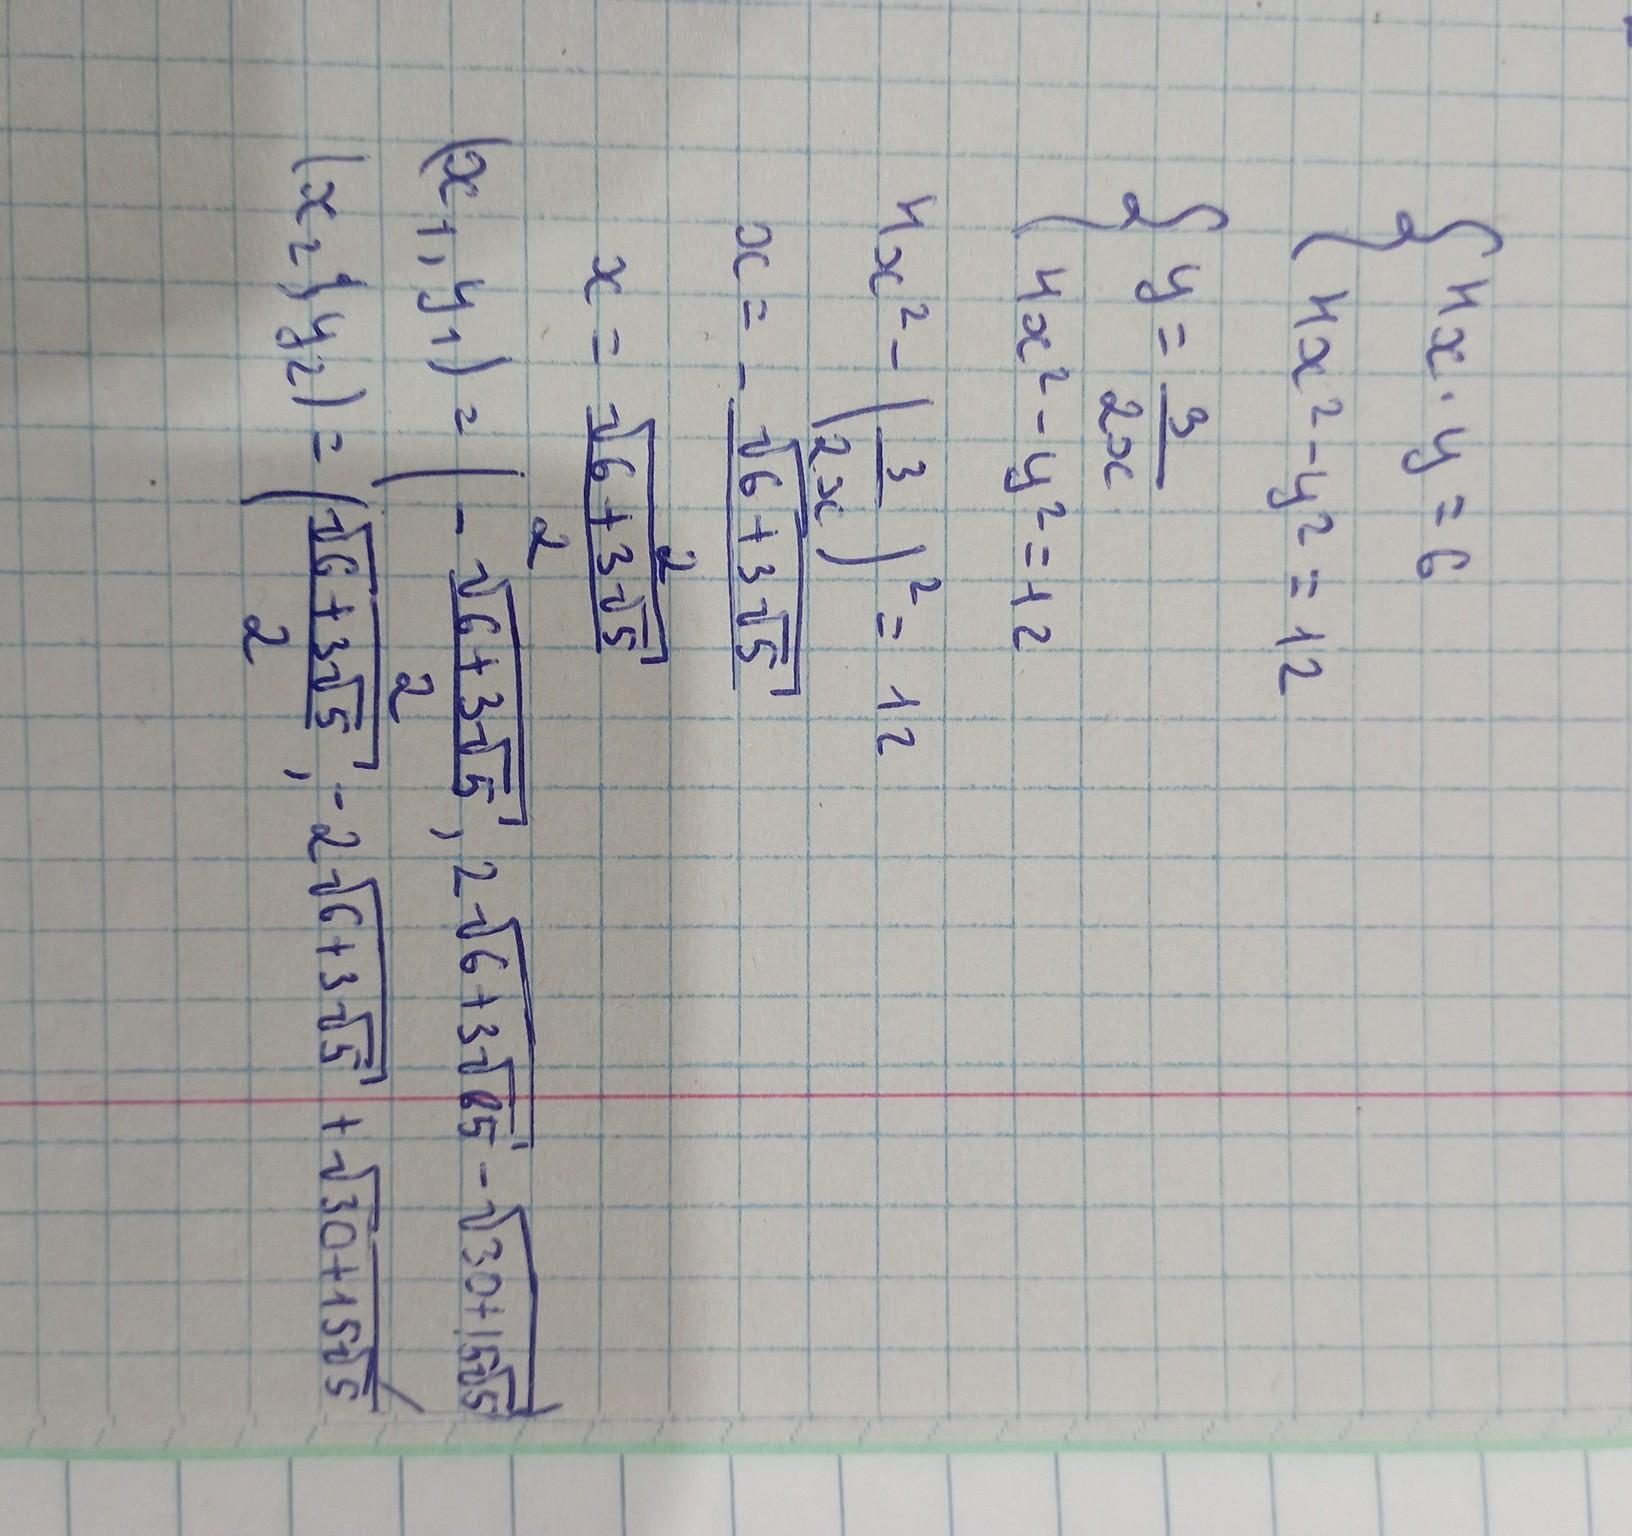 { 4x · y = 6
4x² - y² = 12
{ y = 3/2x
4x² - y² = 12
4x² - (3/2x)² = 12
x = - √(6+3√5)/2
x = √(6+3√5)/2
(x1, y1) = (- √(6+3√5)/2, 2√(6+3√65) - √(30+15√5))
(x2; y2) = (√(6+3√5)/2, -2√(6+3√5) + √(30+15√5))